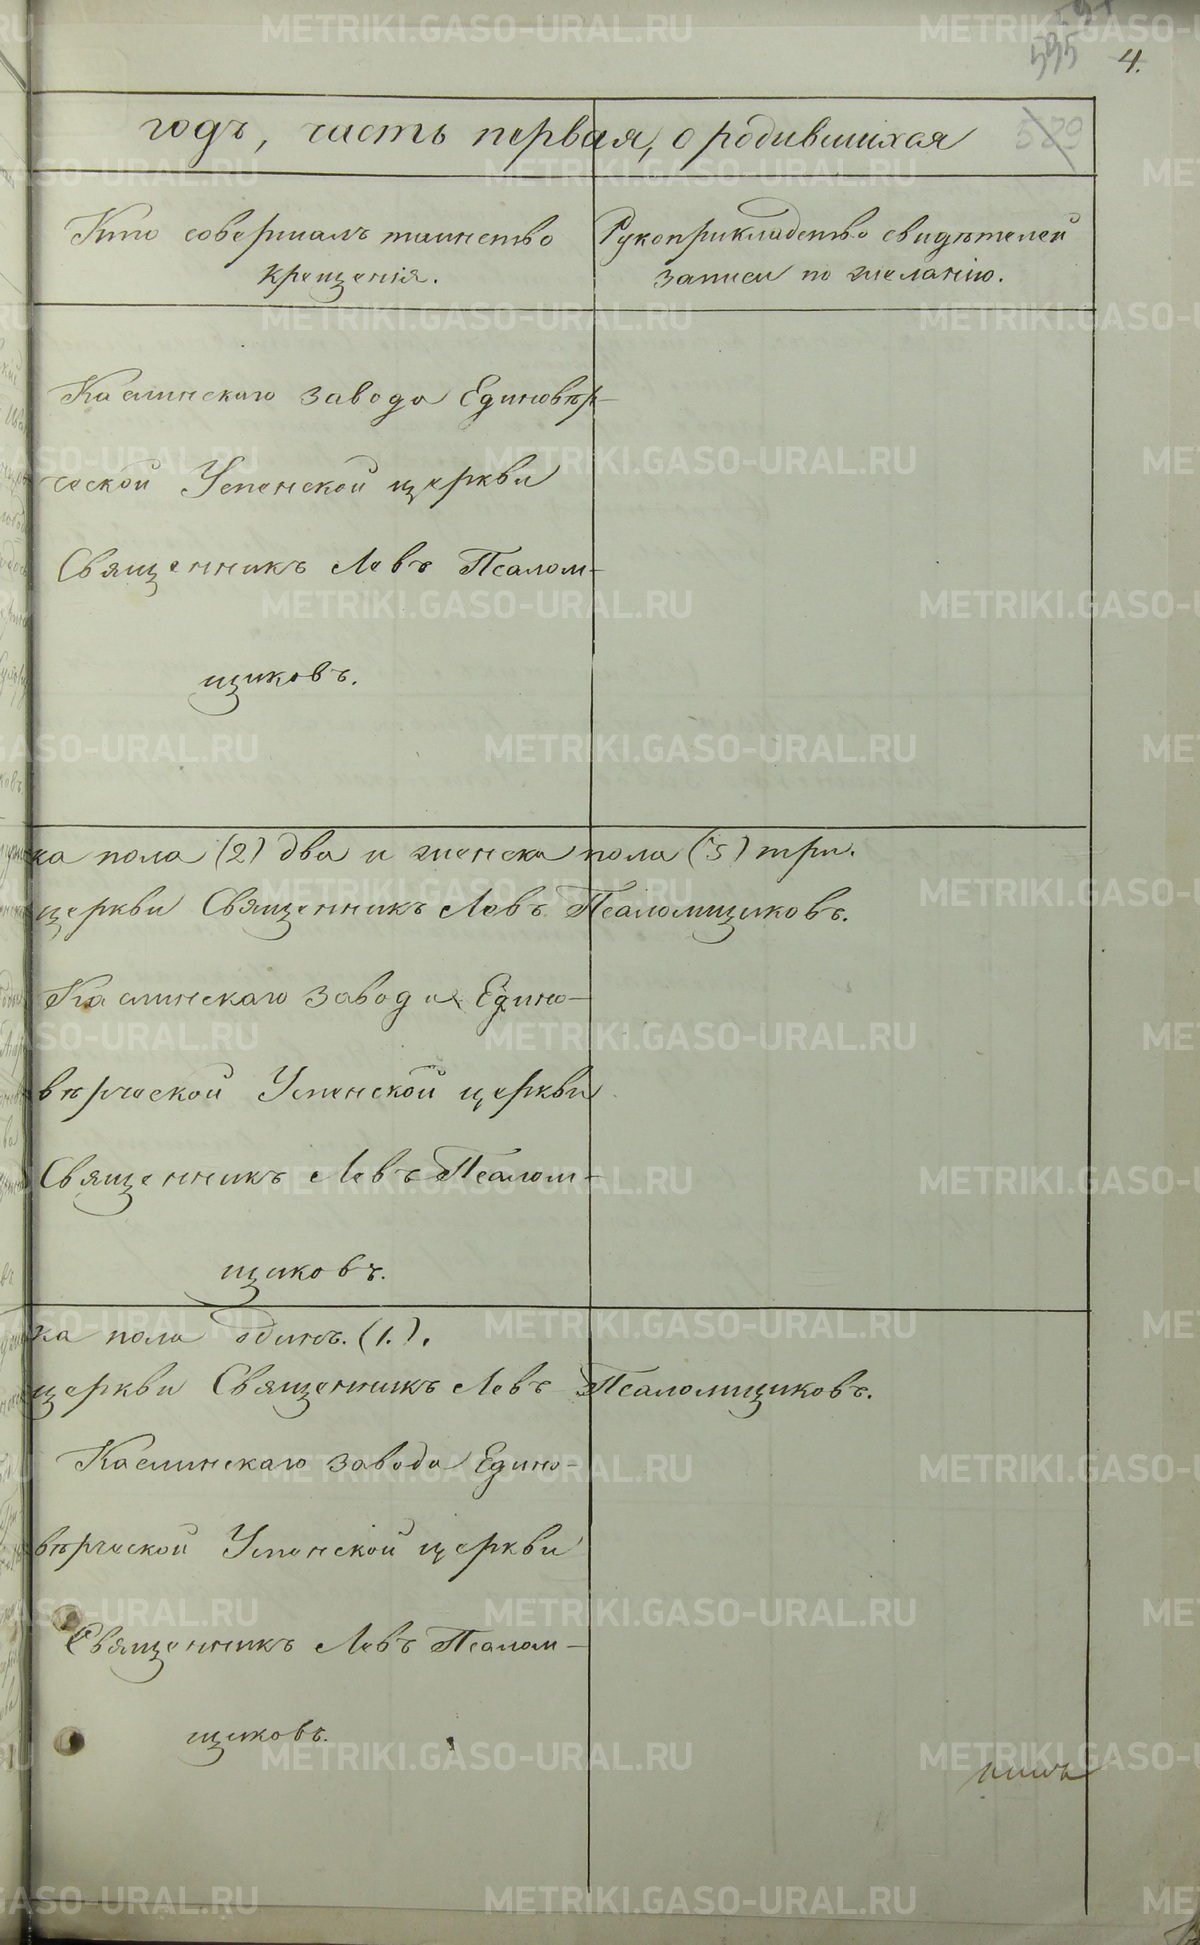 595 4.
589
годъ, часть первая, о родившихся
Кто совершалъ таинство крещенія.
Рукоприкладство свидѣтелей записи по желанію.
Каслинскаго завода Единовѣр-
ческой Успенской церкви
Священникъ Левъ Псалом-
щиковъ.
ка пола (2) два и женска пола (3) три.
церкви Священникъ Левъ Псаломщиковъ.
Каслинскаго завода Едино-
вѣрческой Успенской церкви
Священникъ Левъ Псалом-
щиковъ.
ка пола одинъ. (1.).
церкви Священникъ Левъ Псаломщиковъ.
Каслинскаго завода Едино-
вѣрческой Успенской церкви
Священникъ Левъ Псалом-
щиковъ.
METRIKI.GASO-URAL.RU